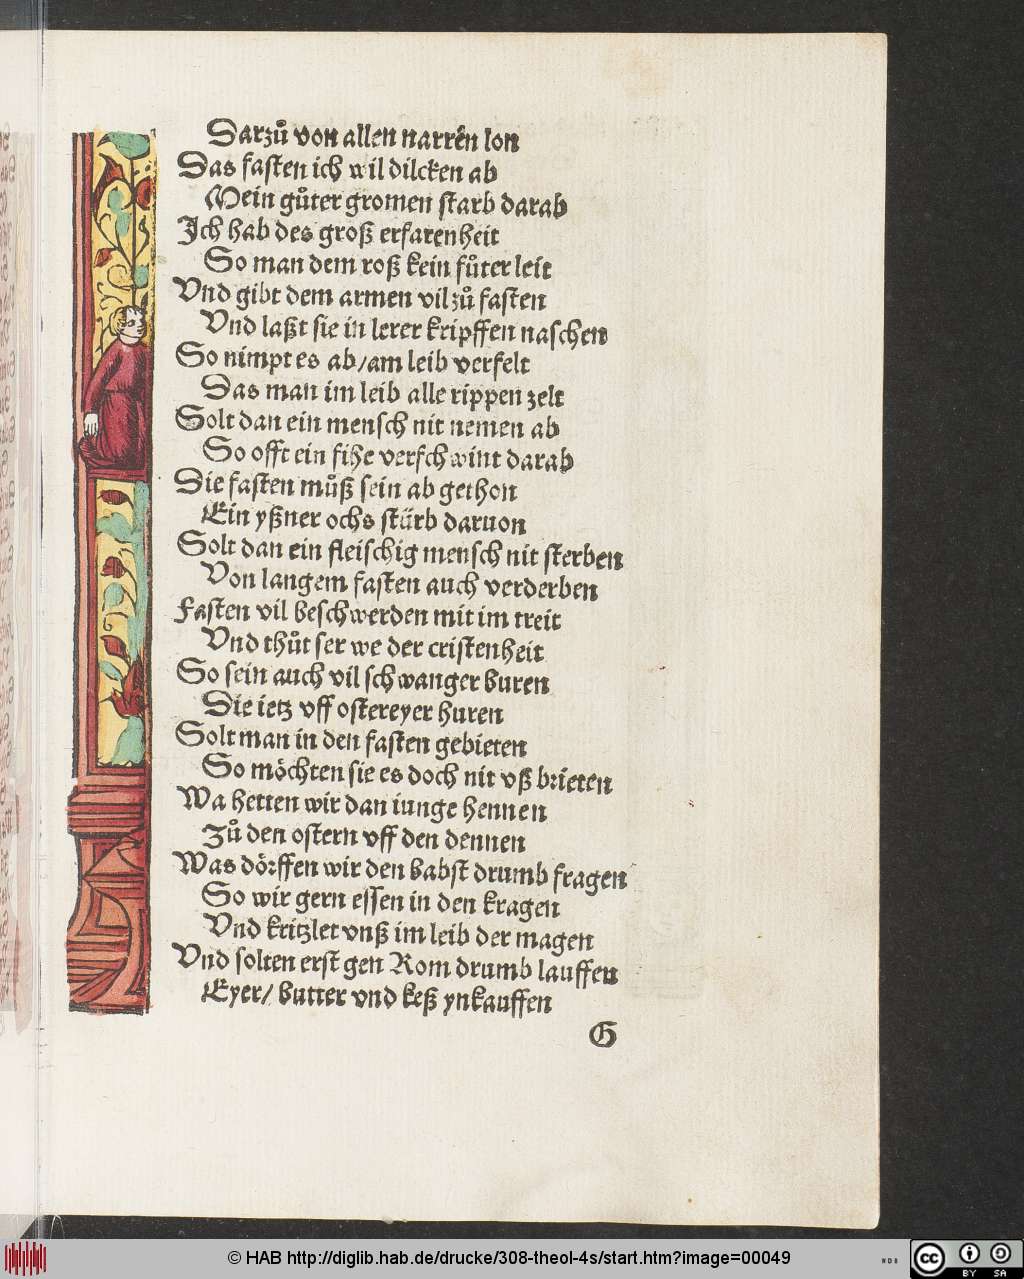 Darzuͦ von allen narren lon
Das fasten ich wil dilcken ab
Mein guͦter gromen starb darab
Ich hab des groß erfarenheit
So man dem roß kein fuͦter leit
Vnd gibt dem armen vil zuͦ fasten
Vnd laßt sie in lerer kripffen naschen
So nimpt es ab/am leib verfelt
Das man im leib alle rippen zelt
Solt dan ein mensch nit nemen ab
So offt ein fihe verschwint darab
Die fasten muͦß sein ab gethon
Ein yßner ochs stürb daruon
Solt dan ein fleischig mensch nit sterben
Von langem fasten auch verderben
Fasten vil beschwerden mit im treit
Vnd thuͦt ser we der cristenheit
So sein auch vil schwanger buren
Die ietz vff ostereyer huren
Solt man in den fasten gebieten
So möchten sie es doch nit vß brieten
Wa hetten wir dan iunge hennen
Zuͦ den ostern vff den dennen
Was dörffen wir den babst drumb fragen
So wir gern essen in den kragen
Vnd kritzlet vnß im leib der magen
Vnd solten erst gen Rom drumb lauffen
Eyer/ butter vnd keß ynkauffen
G
© HAB http://diglib.hab.de/drucke/308-theol-4s/start.htm?image=00049
WDB
cc BY SA